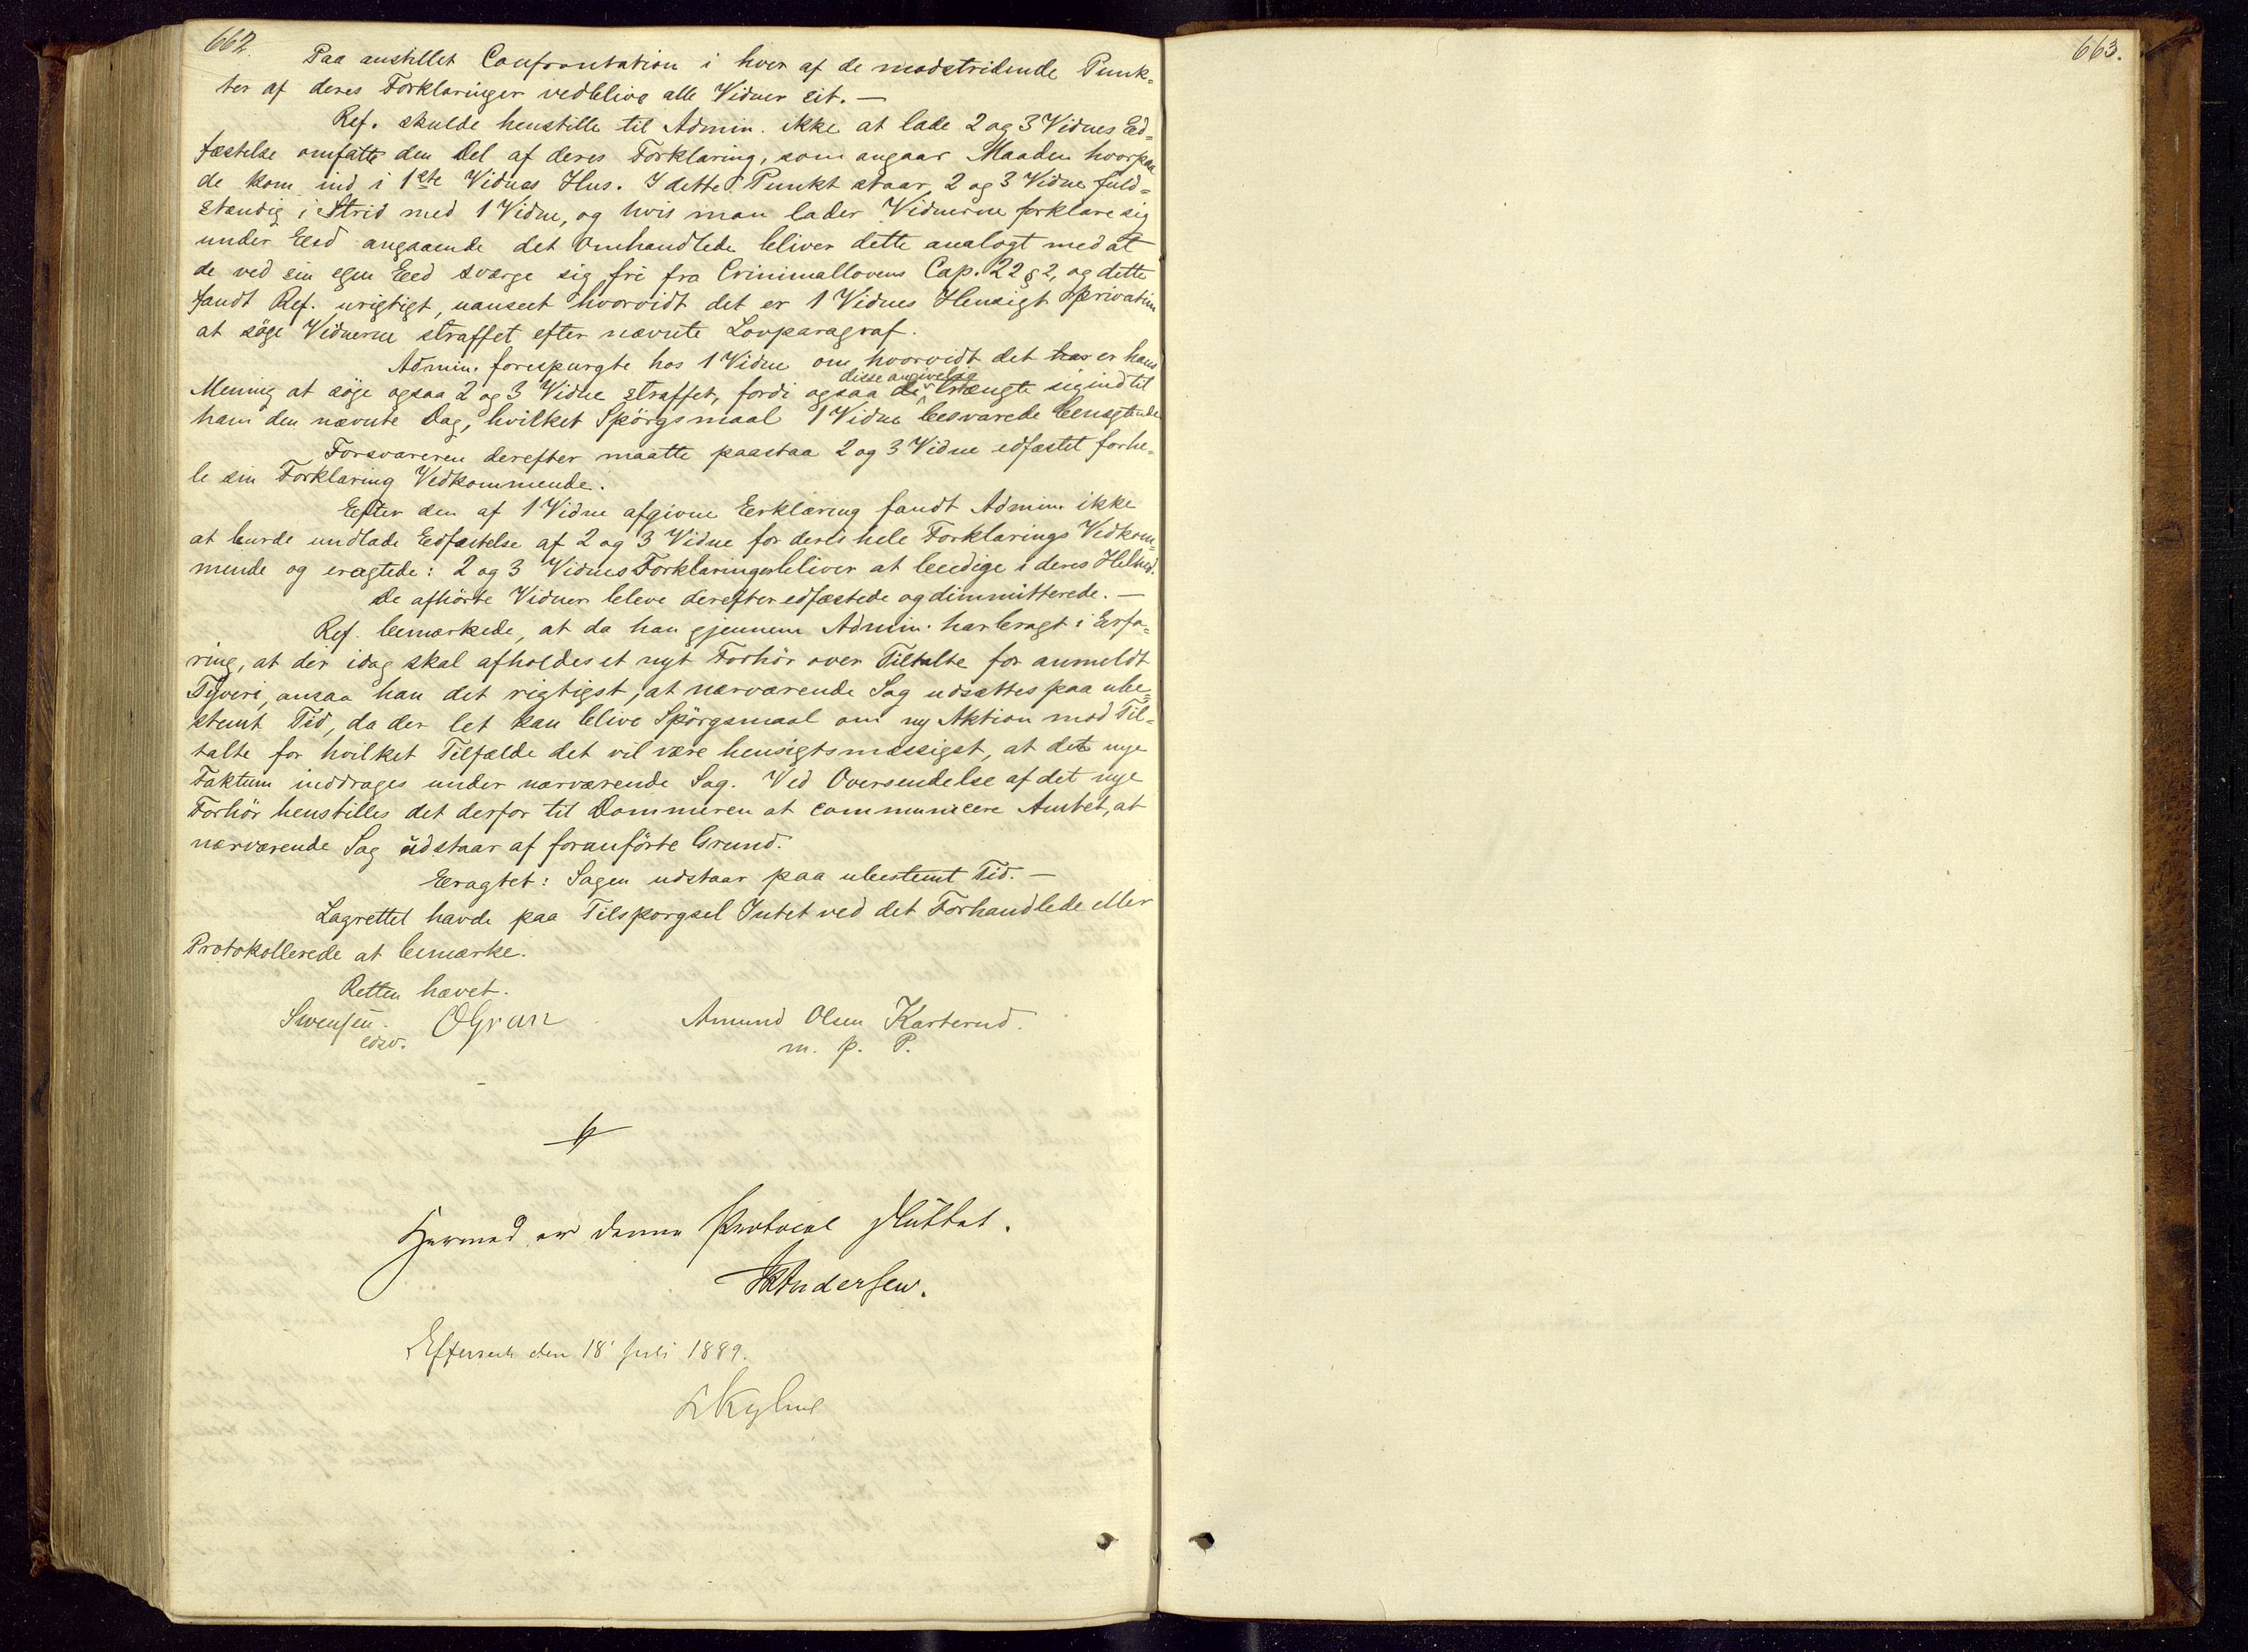 662.
Paa anstillet Confrontation i hver af de modstridende Punk-
ter af deres Forklaringer vedblive alle Vidner sit. —
Ref. skulde henstille til Admin. ikke at lade 2 og 3 Vidnes Ed-
fæstelse omfatte den Del af deres Forklaring, som angaar Maaden hvorpaa
de kom ind i 1ste Vidnes Hus. I dette Punkt staar 2 og 3 Vidne fuld-
stændig i Strid med 1 Vidne, og hvis man lader Vidnerne forklare sig
under Eed angaaende det omhandlede bliver dette analogt med at
de ved sin egen Eed sværge sig fri fra Criminallovens Cap. 22 § 2, og dette
fandt Ref. urigtigt, uanseet hvorvidt det er 1 Vidnes Hensigt privatim
at søge Vidnerne straffet efter nævnte Lovparagraf.
Admin. forespurgte hos 1 Vidne om hvorvidt det har er hans
Mening at søge ogsaa 2 og 3 Vidne straffet, fordi ogsaa de disse angivelig trængte sig ind til
ham den nævnte Dag, hvilket Spørgsmaal 1 Vidne besvarede benegtende
Forsvareren derefter maatte paastaa 2 og 3 Vidne edfæstet for he-
le sin Forklaring Vedkommende.
Efter den af 1 Vidne afgivne Erklæring fandt Admin. ikke
at burde undlade Edfæstelse af 2 og 3 Vidne for deres hele Forklarings Vedkom-
mende og eragtede: 2 og 3 Vidnes Forklaringer bliver at beedige i deres Helhed.
De afhørte Vidner bleve derefter edfæstede og dimmitterede. —
Ref. bemærkede, at da han gjennem Admin. har bragt i Erfa-
ring, at der idag skal afholdes et nyt Forhør over Tiltalte for anmeldt
Tyveri, ansaa han det rigtigst, at nærværende Sag udsættes paa ube-
stemt Tid, da der let kan blive Spørgsmaal om ny Aktion mod Til-
talte for hvilket Tilfælde det vil være hensigtsmæssigst, at det nye
Faktum inddrages under nærværende Sag. Ved Oversendelse af det nye
Forhør henstilles det derfor til Dommeren at communicere Amtet, at
nærværende Sag udstaar af foranførte Grund.
Eragtet: Sagen udstaar paa ubestemt Tid. —
Lagrettet havde paa Tilspørgsel Intet ved det Forhandlede eller
Protokollerede at bemærke.
Retten hævet.
Swensen. OGran Amund Olsen Karterud.
edsv. m. p. P.
Hermed er denne Protocol sluttet.
Andersen.
Efterseet den 18 Juli 1889.
663.